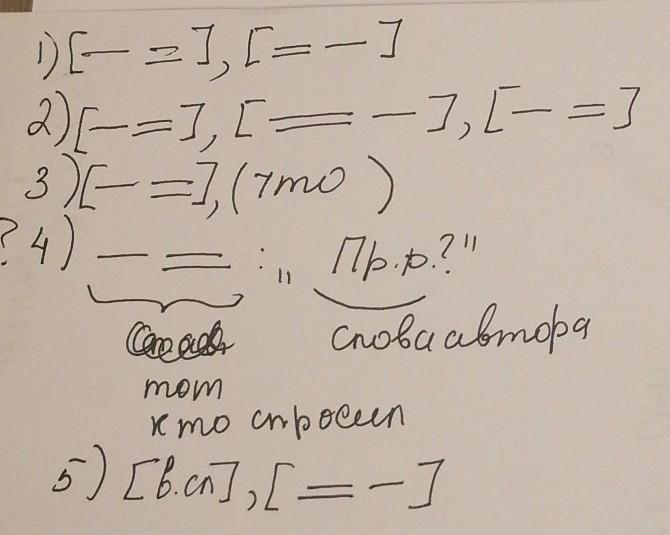 1) [— =], [= —]
2) [— =], [= —], [— =]
3) [— =], (что )
? 4) — = : „ Пр.р.?"
слова автора
тот
кто спросил
5) [в.сл], [= —]